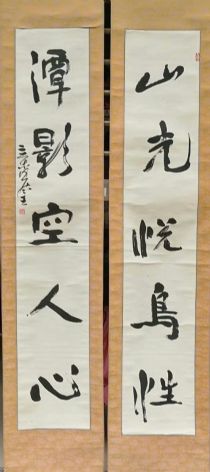 山光悦鳥性
潭影空人心